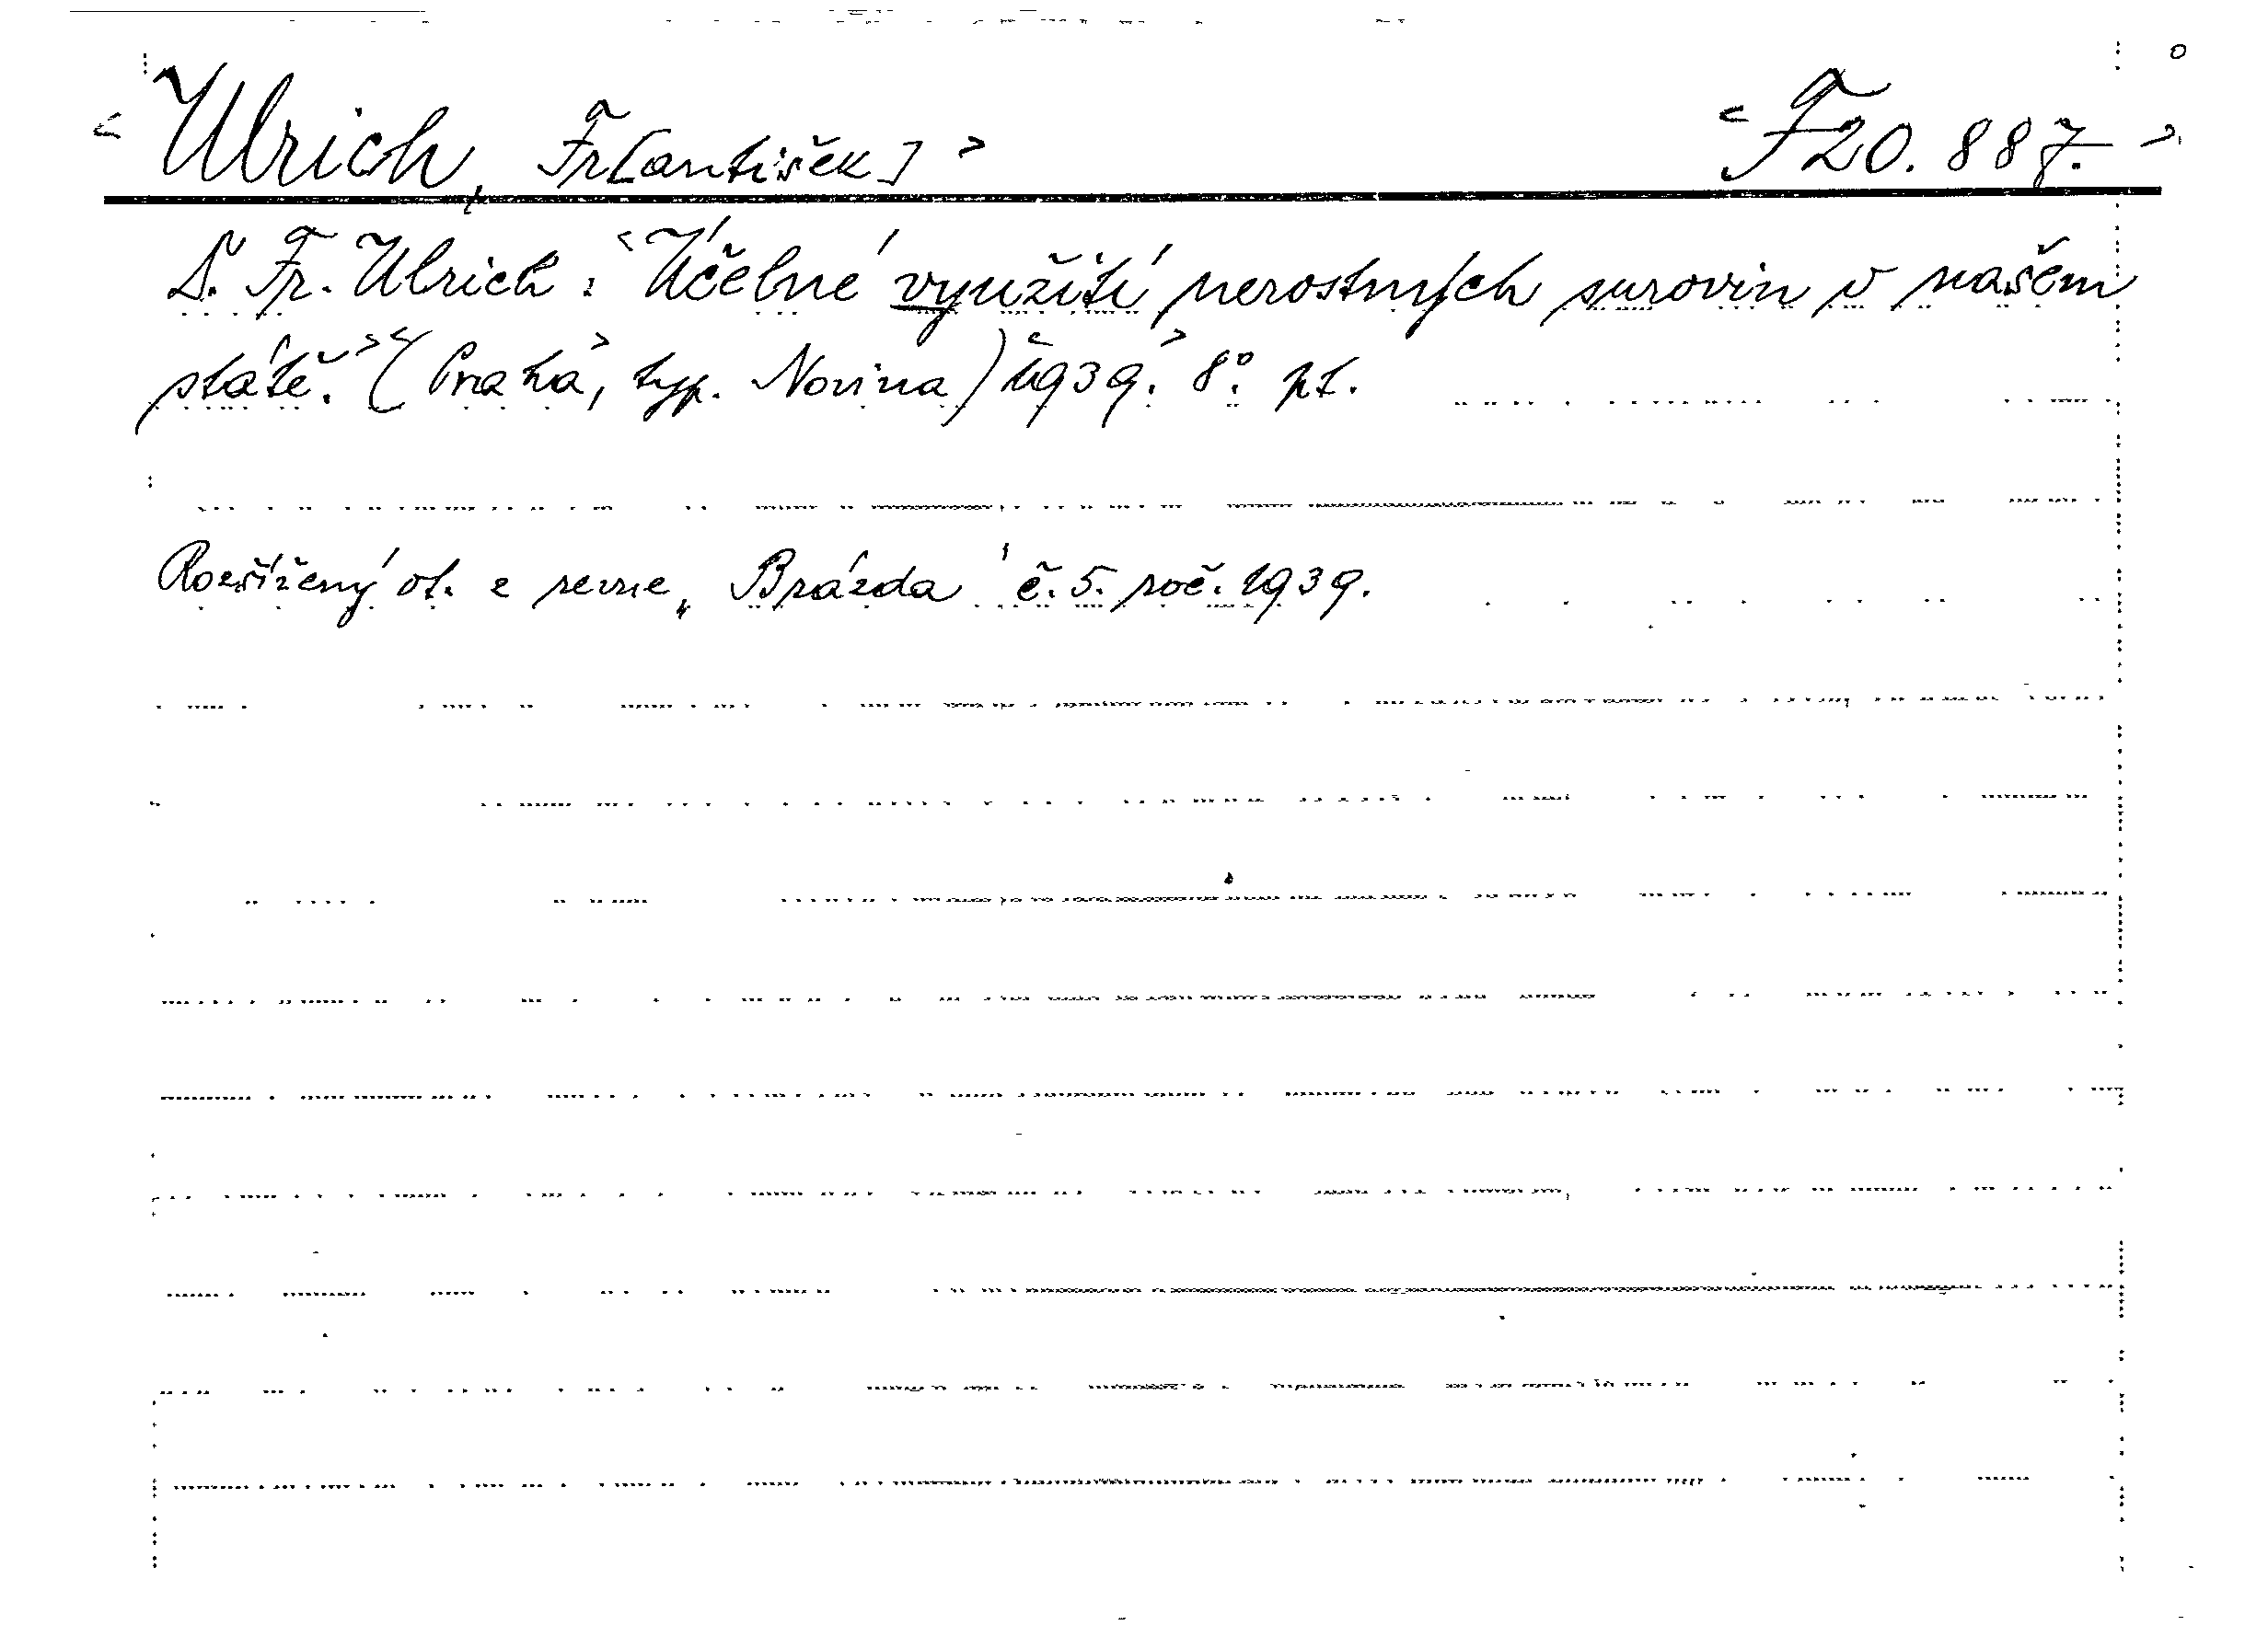 <Ulrich, Fr[antišek]> <F20.887.>
D. Fr. Ulrich: <Účelné využití nerostných surovin v našem
státě.> <(Praha>, typ. Novina) <1939.> 8°. pt.
Rozšířený ot. z revue „Brázda" č. 5. roč. 1939.